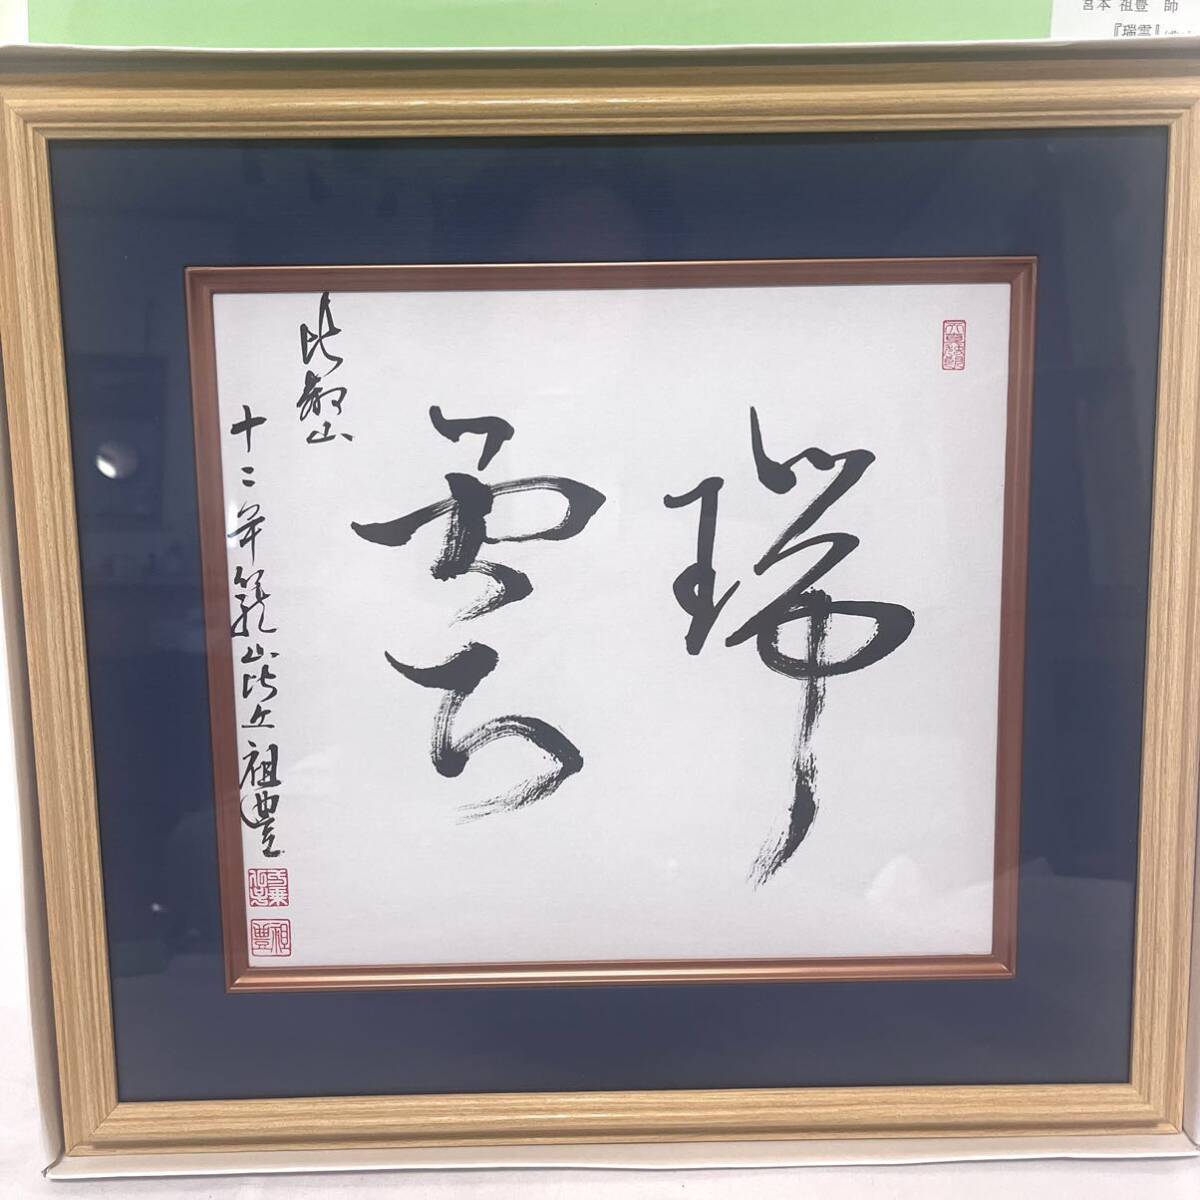 宮本 祖豊 師
『瑞雲』
瑞雲
比叡山
十二年籠山比丘祖豊
祖豊